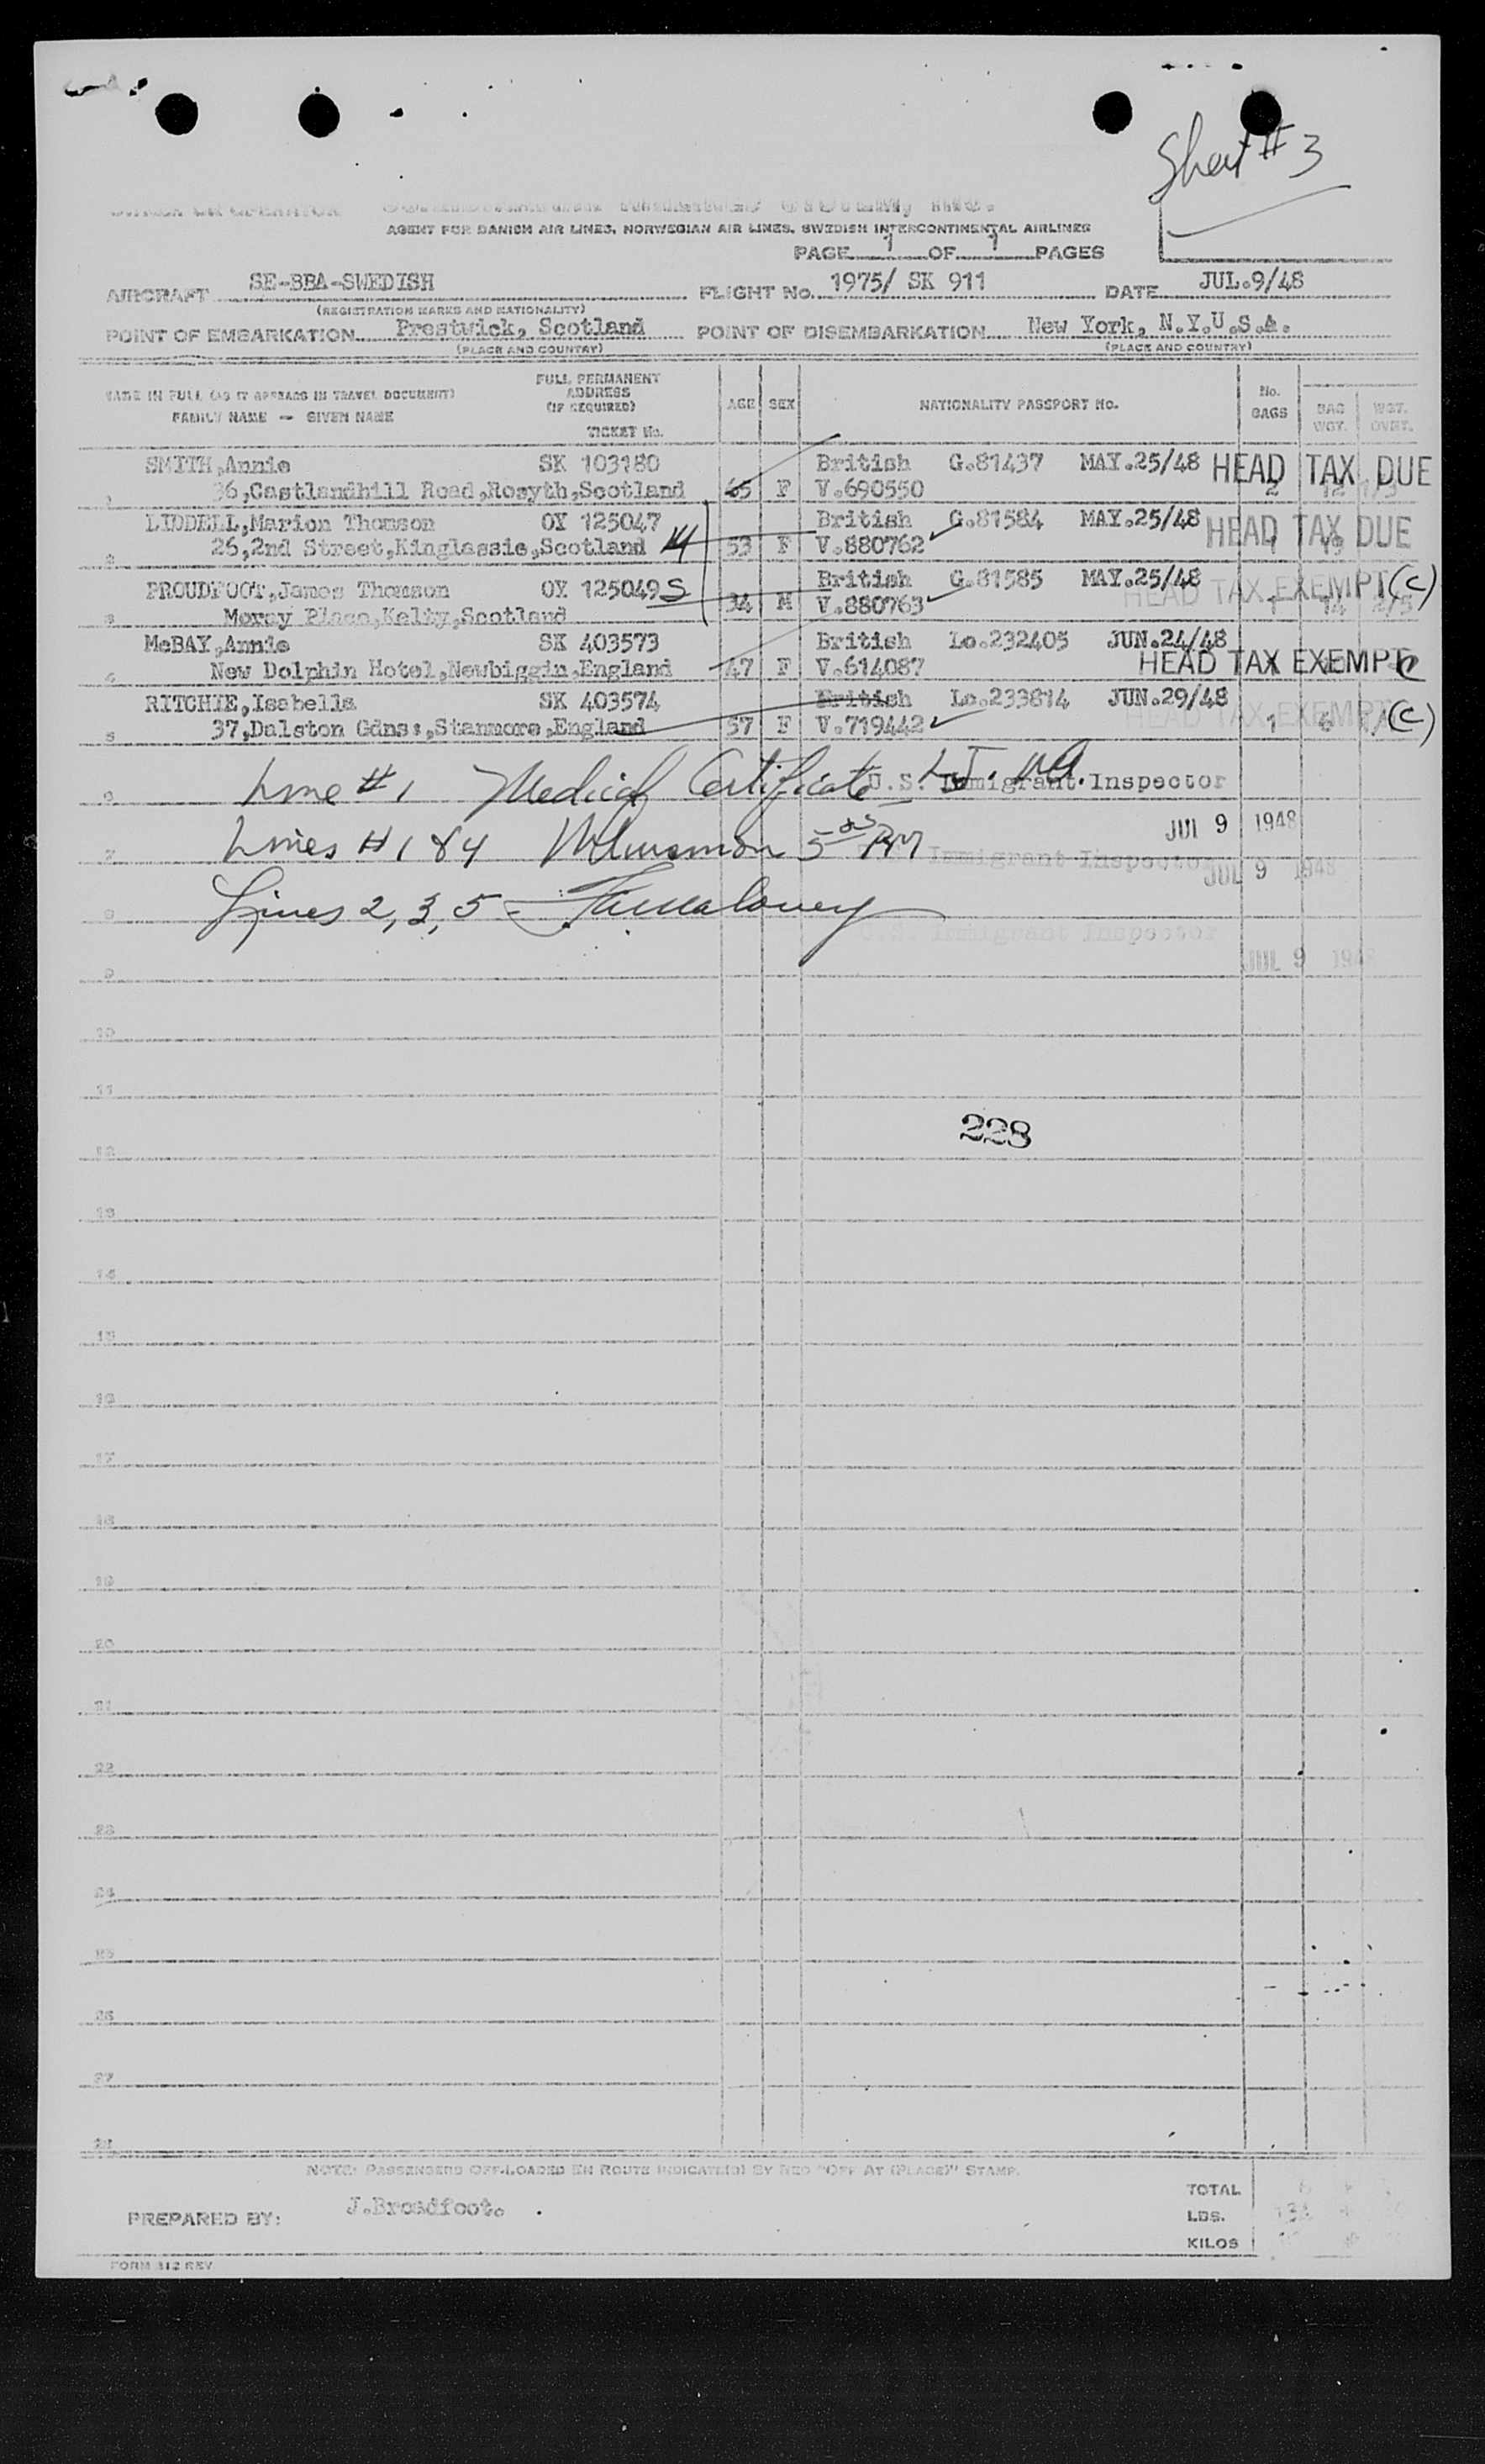 Sheet #3
OWNER OR OPERATOR
AGENT FOR DANISH AIR LINES, NORWEGIAN AIR LINES, SWEDISH INTERCONTINENTAL AIRLINES
PAGE 1 OF 1 PAGES
AIRCRAFT SE-BBA-SWEDISH FLIGHT No. 1975/ SK 911 DATE JUL.9/48
(REGISTRATION MARKS AND NATIONALITY)
POINT OF EMBARKATION Prestwick, Scotland POINT OF DISEMBARKATION New York, N.Y.U.S.A.
(PLACE AND COUNTRY) (PLACE AND COUNTRY)
NAME IN FULL (AS IT APPEARS IN TRAVEL DOCUMENT)
FAMILY NAME — GIVEN NAME
FULL PERMANENT
ADDRESS
(IF REQUIRED)
TICKET No.
AGE SEX NATIONALITY PASSPORT No.
No.
BAGS
BAG
WGT.
WGT.
OVRT.
SMITH,Annie SK 103180 British G.81437 MAY.25/48 HEAD TAX DUE
1 36,Castlandhill Road,Rosyth,Scotland 65 F V.690550 2 12
LIDDELL,Marion Thomson OY 125047 British G.81584 MAY.25/48 HEAD TAX DUE
2 26,2nd Street,Kinglassie,Scotland M 53 F V.880762 1
PROUDFOOT,James Thomson OY 125049 S British G.81585 MAY.25/48 HEAD TAX EXEMPT (C)
3 Moray Place,Kelty,Scotland 34 M V.880763 1 14
McBAY,Annie SK 403573 British Lo.232405 JUN.24/48
4 New Dolphin Hotel,Newbiggin,England 47 F V.614087 HEAD TAX EXEMPT
RITCHIE,Isabella SK 403574 British Lo.233814 JUN.29/48 HEAD TAX EXEMPT (C)
5 37,Dalston Gdns:,Stanmore,England 57 F V.719442 1 6
6 Line #1 Medical Certificate U.S. Immigrant Inspector
JUL 9 1948
7 Lines #1 & 4 5 PM U.S. Immigrant Inspector
JUL 9 1948
8 Lines 2, 3, 5 -
U.S. Immigrant Inspector
JUL 9 1948
9
10
11
228
12
13
14
15
16
17
18
19
20
21
22
23
24
25
26
27
28
NOTE: PASSENGERS OFF-LOADED EN ROUTE INDICATE(D) BY RED "OFF AT (PLACE)" STAMP.
PREPARED BY: J.Broadfoot.
TOTAL
LBS.
KILOS
FORM 112 REV